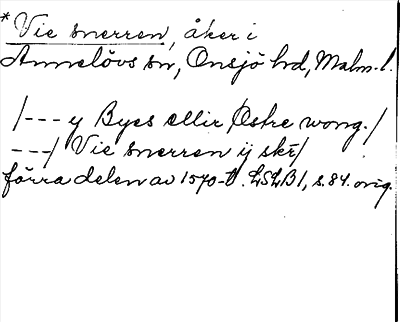 * Vie snerren, åker i
Annelövs sn, Onsjö hd, Malm. l.
/--- y Byes ellir /Østre wong./
---/ Vie snerren ij skr̄/
förra delen av 1570-t. LSLB1, s. 84. orig.